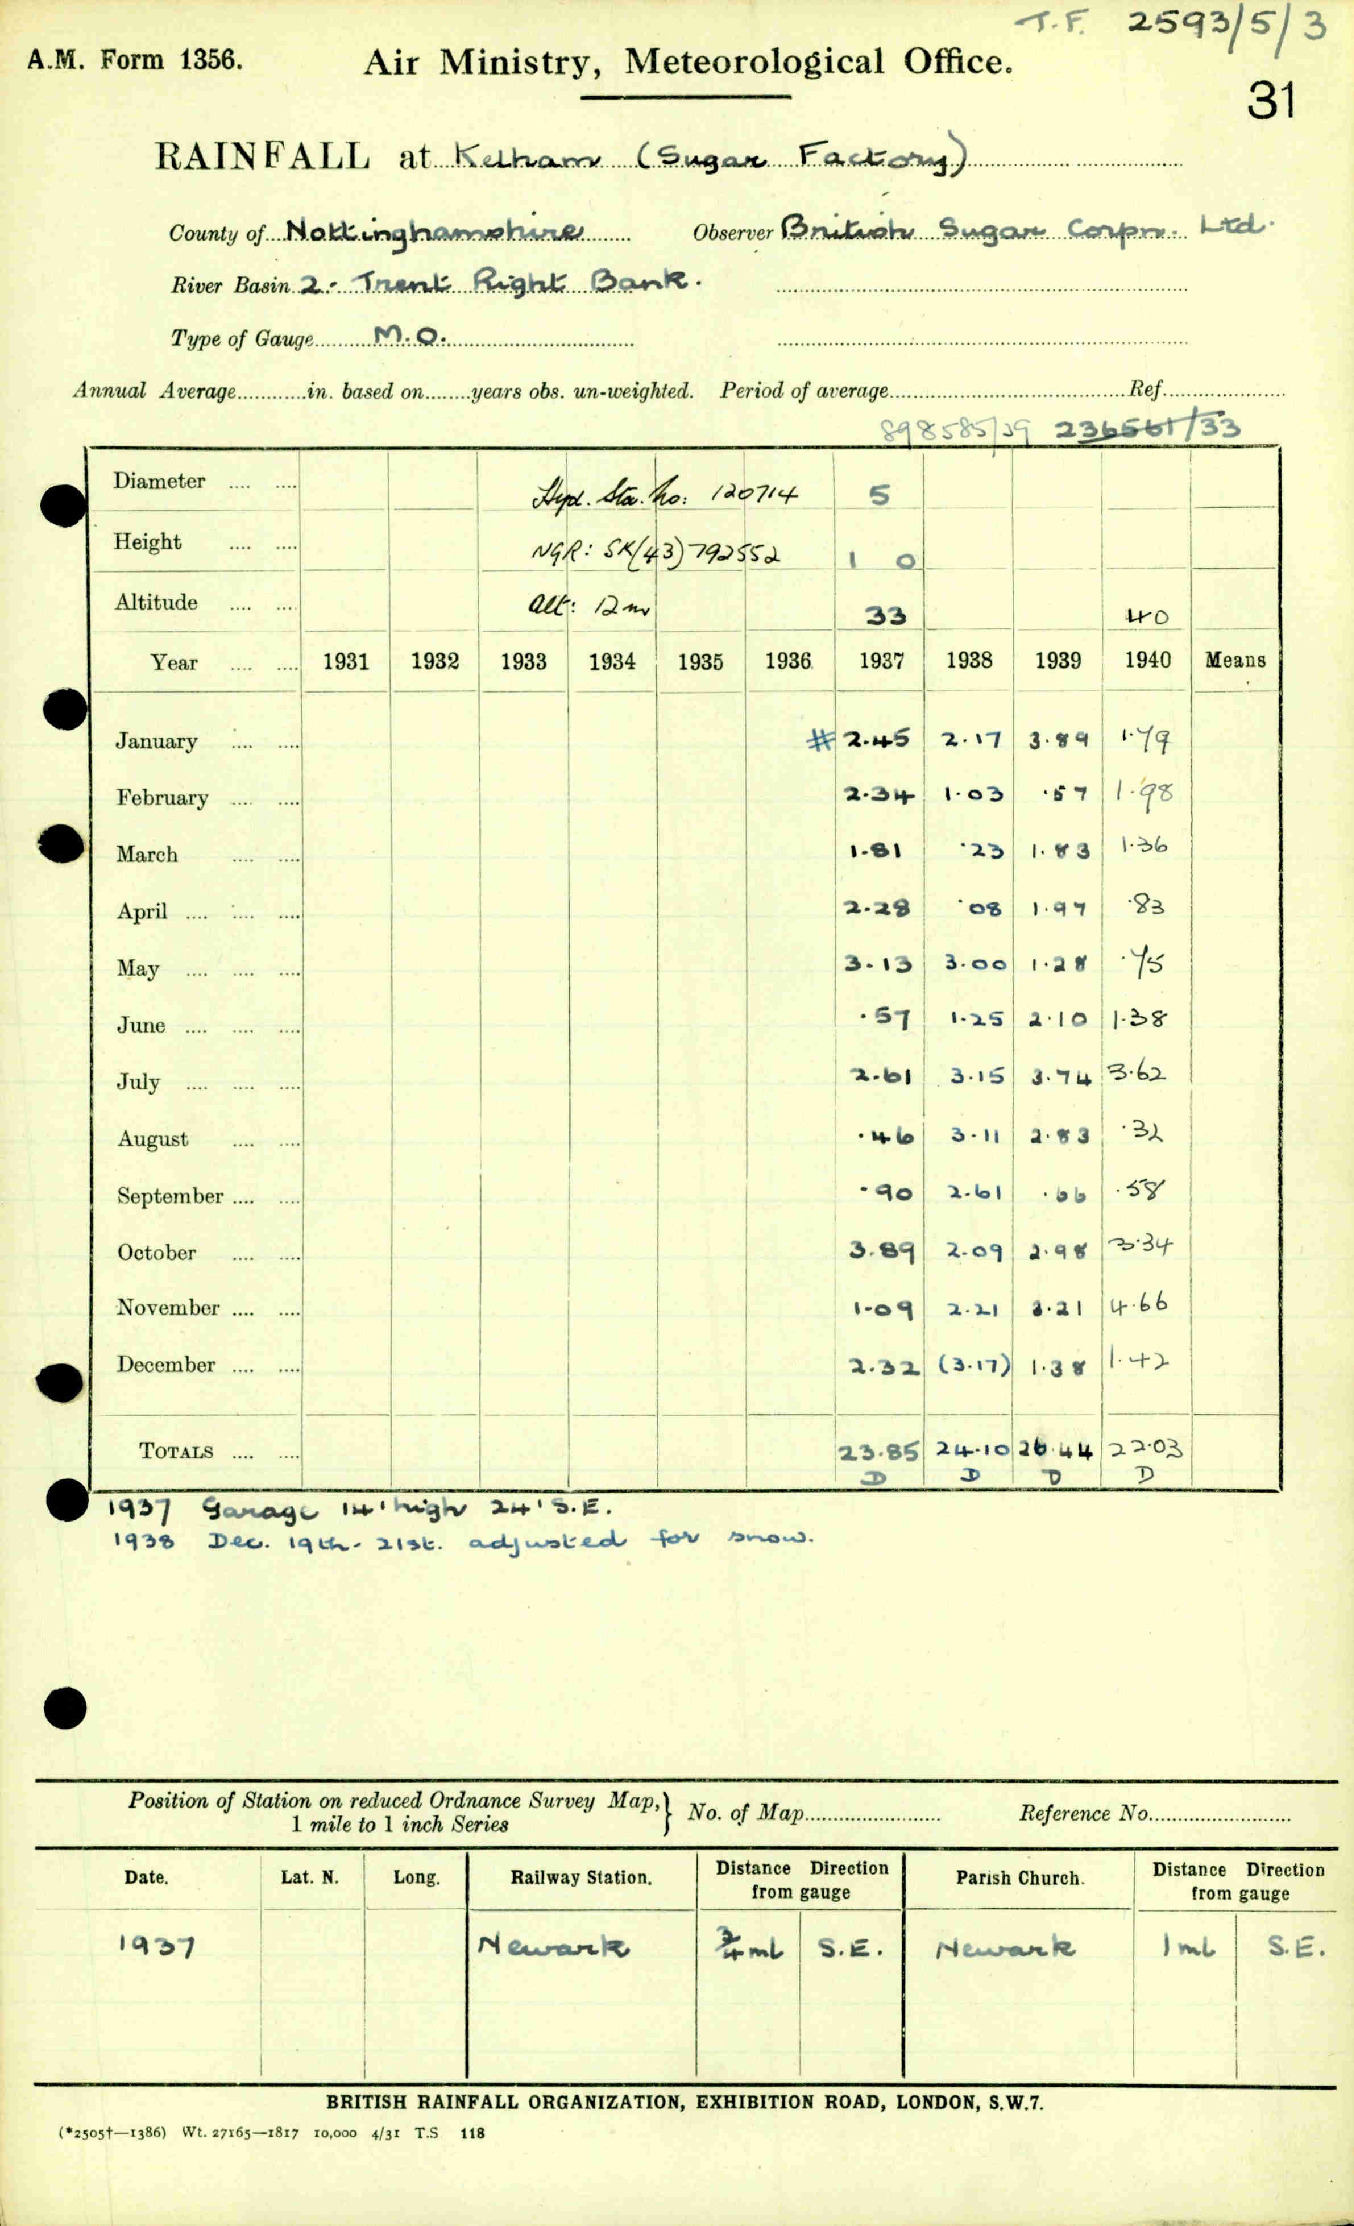 T.F. 2593/5/3
A.M. Form 1356. Air Ministry, Meteorological Office.
31
RAINFALL at Kelham (Sugar Factory)
County of Nottinghamshire Observer British Sugar Corpn. Ltd.
River Basin 2. Trent Right Bank.
Type of Gauge M.O.
Annual Average............in. based on........years obs. un-weighted. Period of average........ Ref........
898585/39 236561/33
Diameter .... .... Hyd. Sta. No: 120714 5
Height .... .... NGR: SK(43)792552 1 0
Altitude .... .... Alt: 12m 33 40
Year .... .... 1931 1932 1933 1934 1935 1936 1937 1938 1939 1940 Means
January .... .... # 2.45 2.17 3.89 1.79
February .... .... 2.34 1.03 .57 1.98
March .... .... 1.81 .23 1.83 1.36
April .... .... .... 2.28 .08 1.97 .83
May .... .... .... 3.13 3.00 1.28 .75
June .... .... .... .57 1.25 2.10 1.38
July .... .... .... 2.61 3.15 3.74 3.62
August .... .... .46 3.11 2.83 .32
September .... .... .90 2.61 .66 .58
October .... .... 3.89 2.09 2.98 3.34
November .... .... 1.09 2.21 3.21 4.66
December .... .... 2.32 (3.17) 1.38 1.42
TOTALS .... .... 23.85 24.10 26.44 22.03
D D D D
1937 Garage 14' high 24' S.E.
1938 Dec. 19th - 21st. adjusted for snow.
Position of Station on reduced Ordnance Survey Map, } No. of Map........ Reference No.........
1 mile to 1 inch Series
Date. Lat. N. Long. Railway Station. Distance Direction from gauge Parish Church. Distance Direction from gauge
1937 Newark ¾ ml S.E. Newark 1 ml S.E.
BRITISH RAINFALL ORGANIZATION, EXHIBITION ROAD, LONDON, S.W.7.
(*2505†—1386) Wt. 27165—1817 10,000 4/31 T.S 118